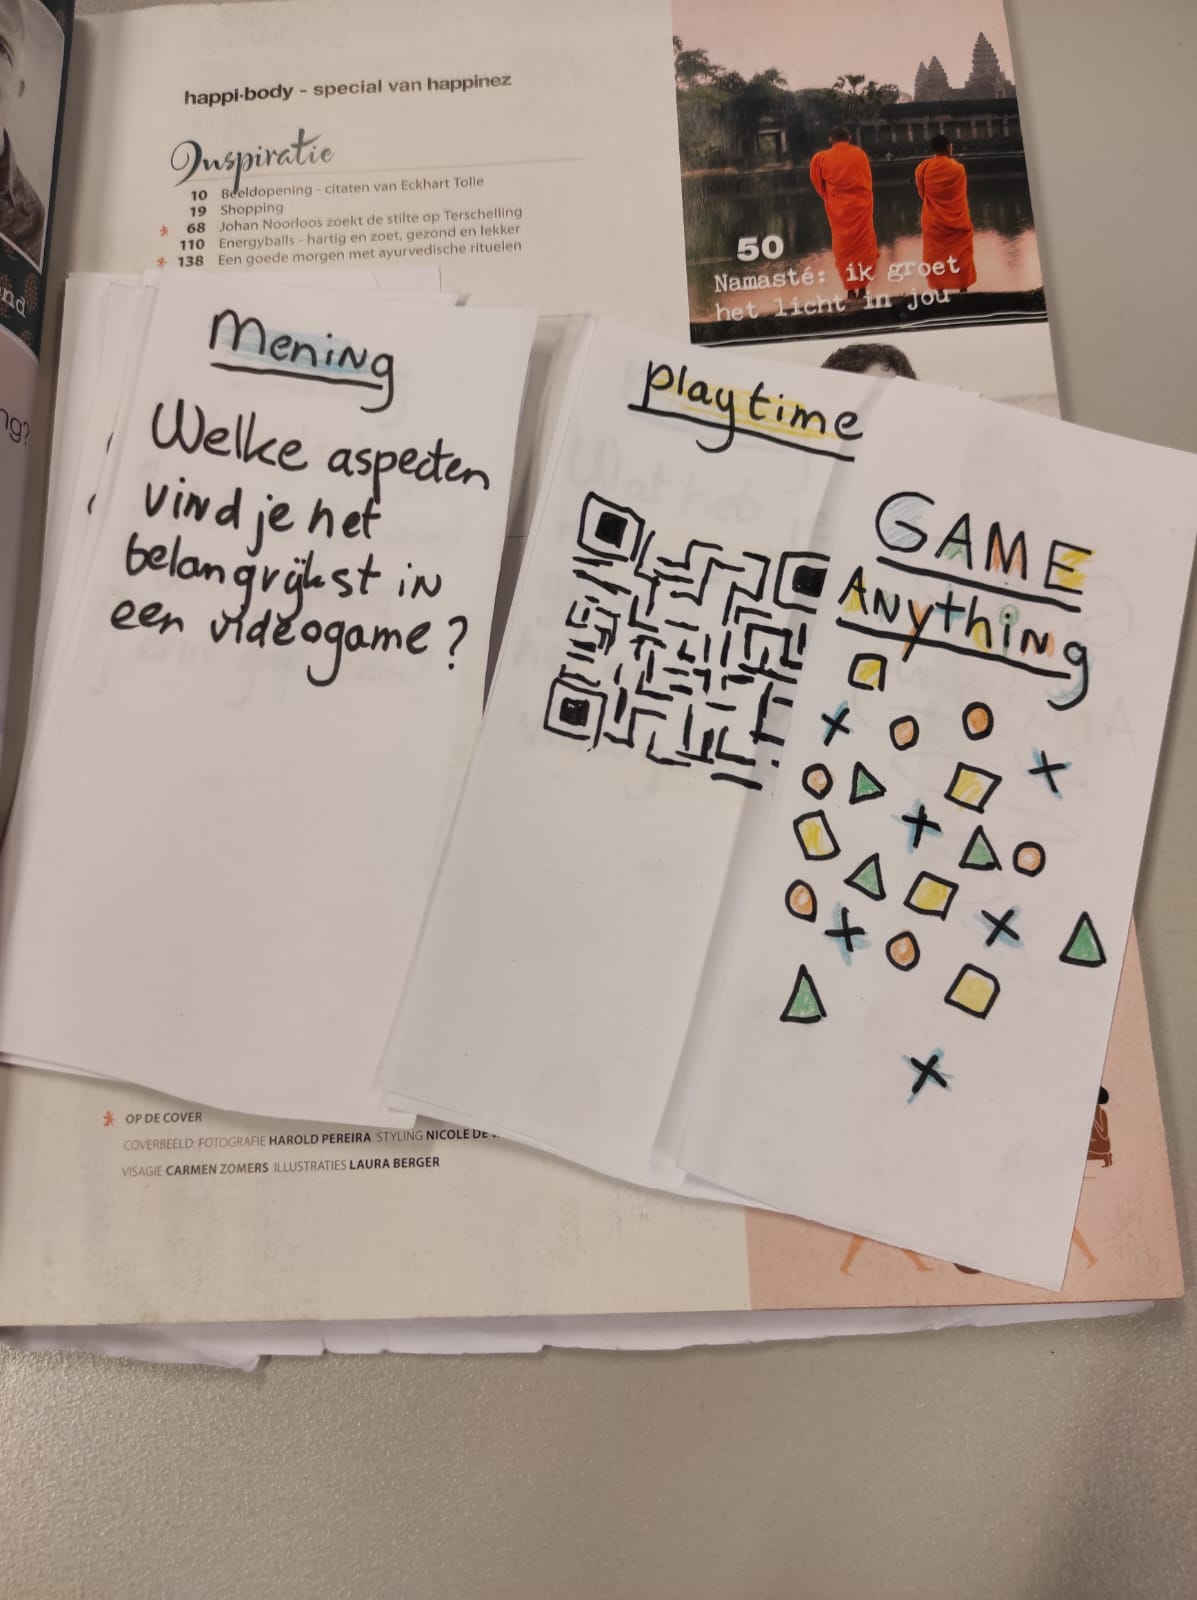 happi·body - special van happinez
Inspiratie
10 Beeldopening - citaten van Eckhart Tolle
19 Shopping
68 Johan Noorloos zoekt de stilte op Terschelling
110 Energyballs - hartig en zoet, gezond en lekker
138 Een goede morgen met ayurvedische rituelen
50
Namasté: ik groet
het licht in jou
Mening
Welke aspecten
vind je het
belangrijkst in
een videogame?
playtime
GAME
Anything
OP DE COVER
COVERBEELD: FOTOGRAFIE HAROLD PEREIRA STYLING NICOLE DE
VISAGIE CARMEN ZOMERS ILLUSTRATIES LAURA BERGER